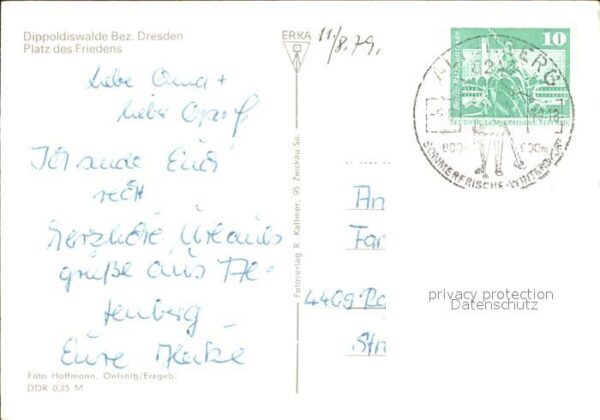 Dippoldiswalde Bez. Dresden
Platz des Friedens
ERKA
11/8.79.
10
DEUTSCHE DEMOKRATISCHE REPUBLIK
800-
900m
SOMMERFRISCHE-WINTERSPORT
Liebe Oma +
lieber Opa!
Ich sende Euch
recht
herzliche Urlaubs
grüße aus Al-
tenberg
Eure Heike
Fotoverlag R. Kallmer, 95 Zwickau Sa.
An
Fam
4409 Ro
Str
privacy protection
Datenschutz
Foto Hoffmann, Oelsnitz/Erzgeb.
DDR 0,25 M